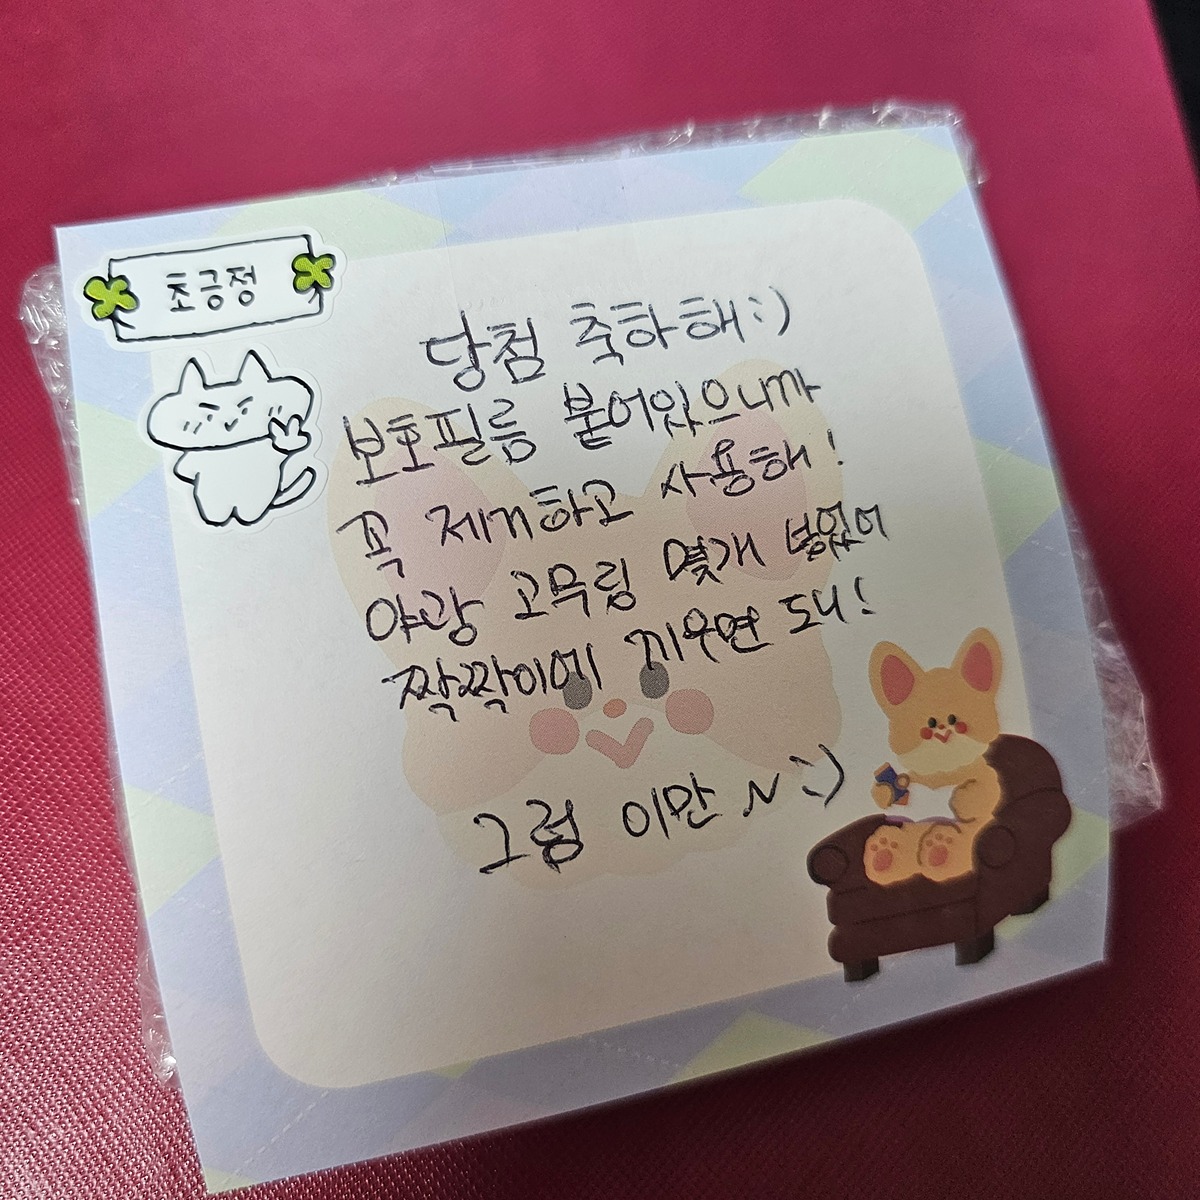 초긍정
당첨 축하해:)
보호필름 붙어있으니까
꼭 제거하고 사용해!
야광 고무링 몇개 넣었어
짝짝이에 끼우면 돼!
그럼 이만~:)